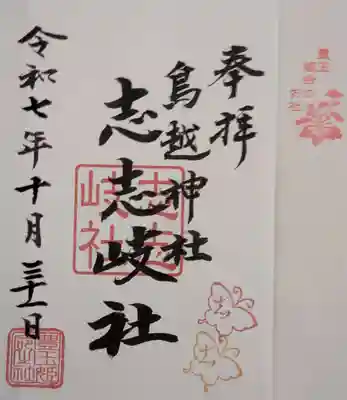 奉拝
鳥越神社
志志岐社
志志
岐社
令和七年十月三十一日